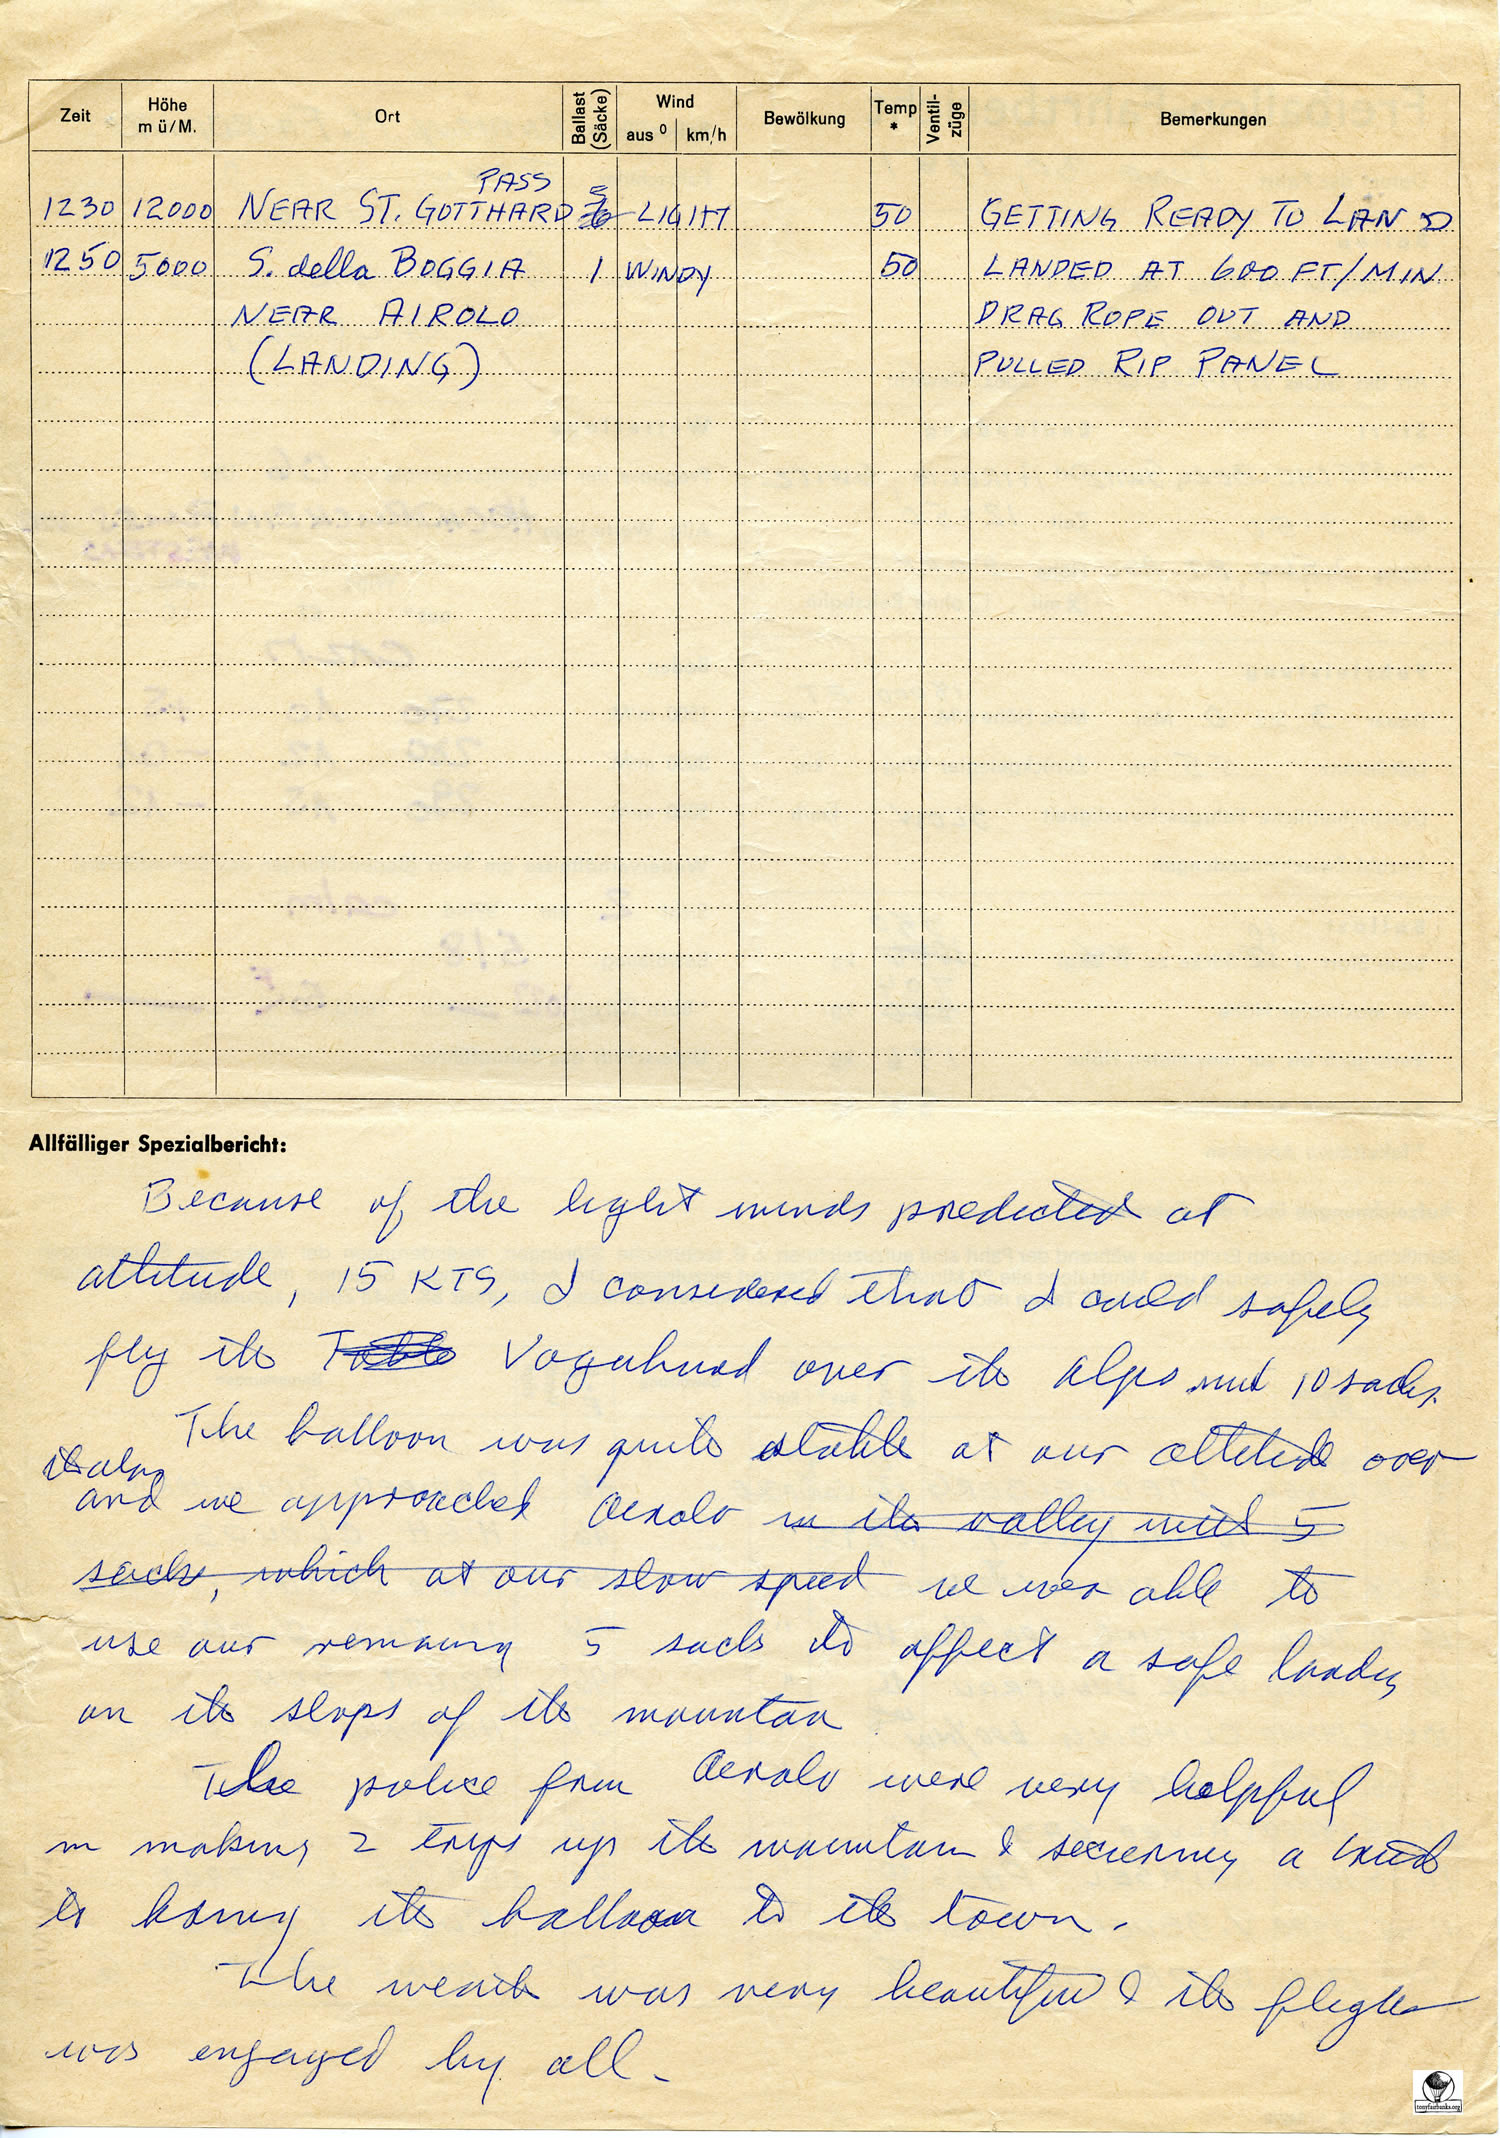 Zeit Höhe m ü/M. Ort Ballast (Säcke) Wind aus ° km/h Bewölkung Temp * Ventil-züge Bemerkungen
PASS
1230 12000 NEAR ST. GOTTHARD 5 LIGHT 50 GETTING READY TO LAND
1250 5000 S. della BOGGIA 1 WINDY 50 LANDED AT 600 FT/MIN
NEAR AIROLO DRAG ROPE OUT AND
(LANDING) PULLED RIP PANEL
Allfälliger Spezialbericht:
Because of the light winds predicted at
altitude, 15 KTS, I considered that I could safely
fly the Vagabund over the Alps with 10 sacks.
The balloon was quite stable at our altitude over
the alps
and we approached Aerolo in the valley with 5
sacks, which at our slow speed we were able to
use our remaing 5 sacks to affect a safe landing
on the slops of the mountan
The police from Aerolo were very helpful
in making 2 trips up the mountain & securing a
to bring the balloon to the town.
The weath was very beautiful & the flight
was engayed by all.
tonyfairbanks.org